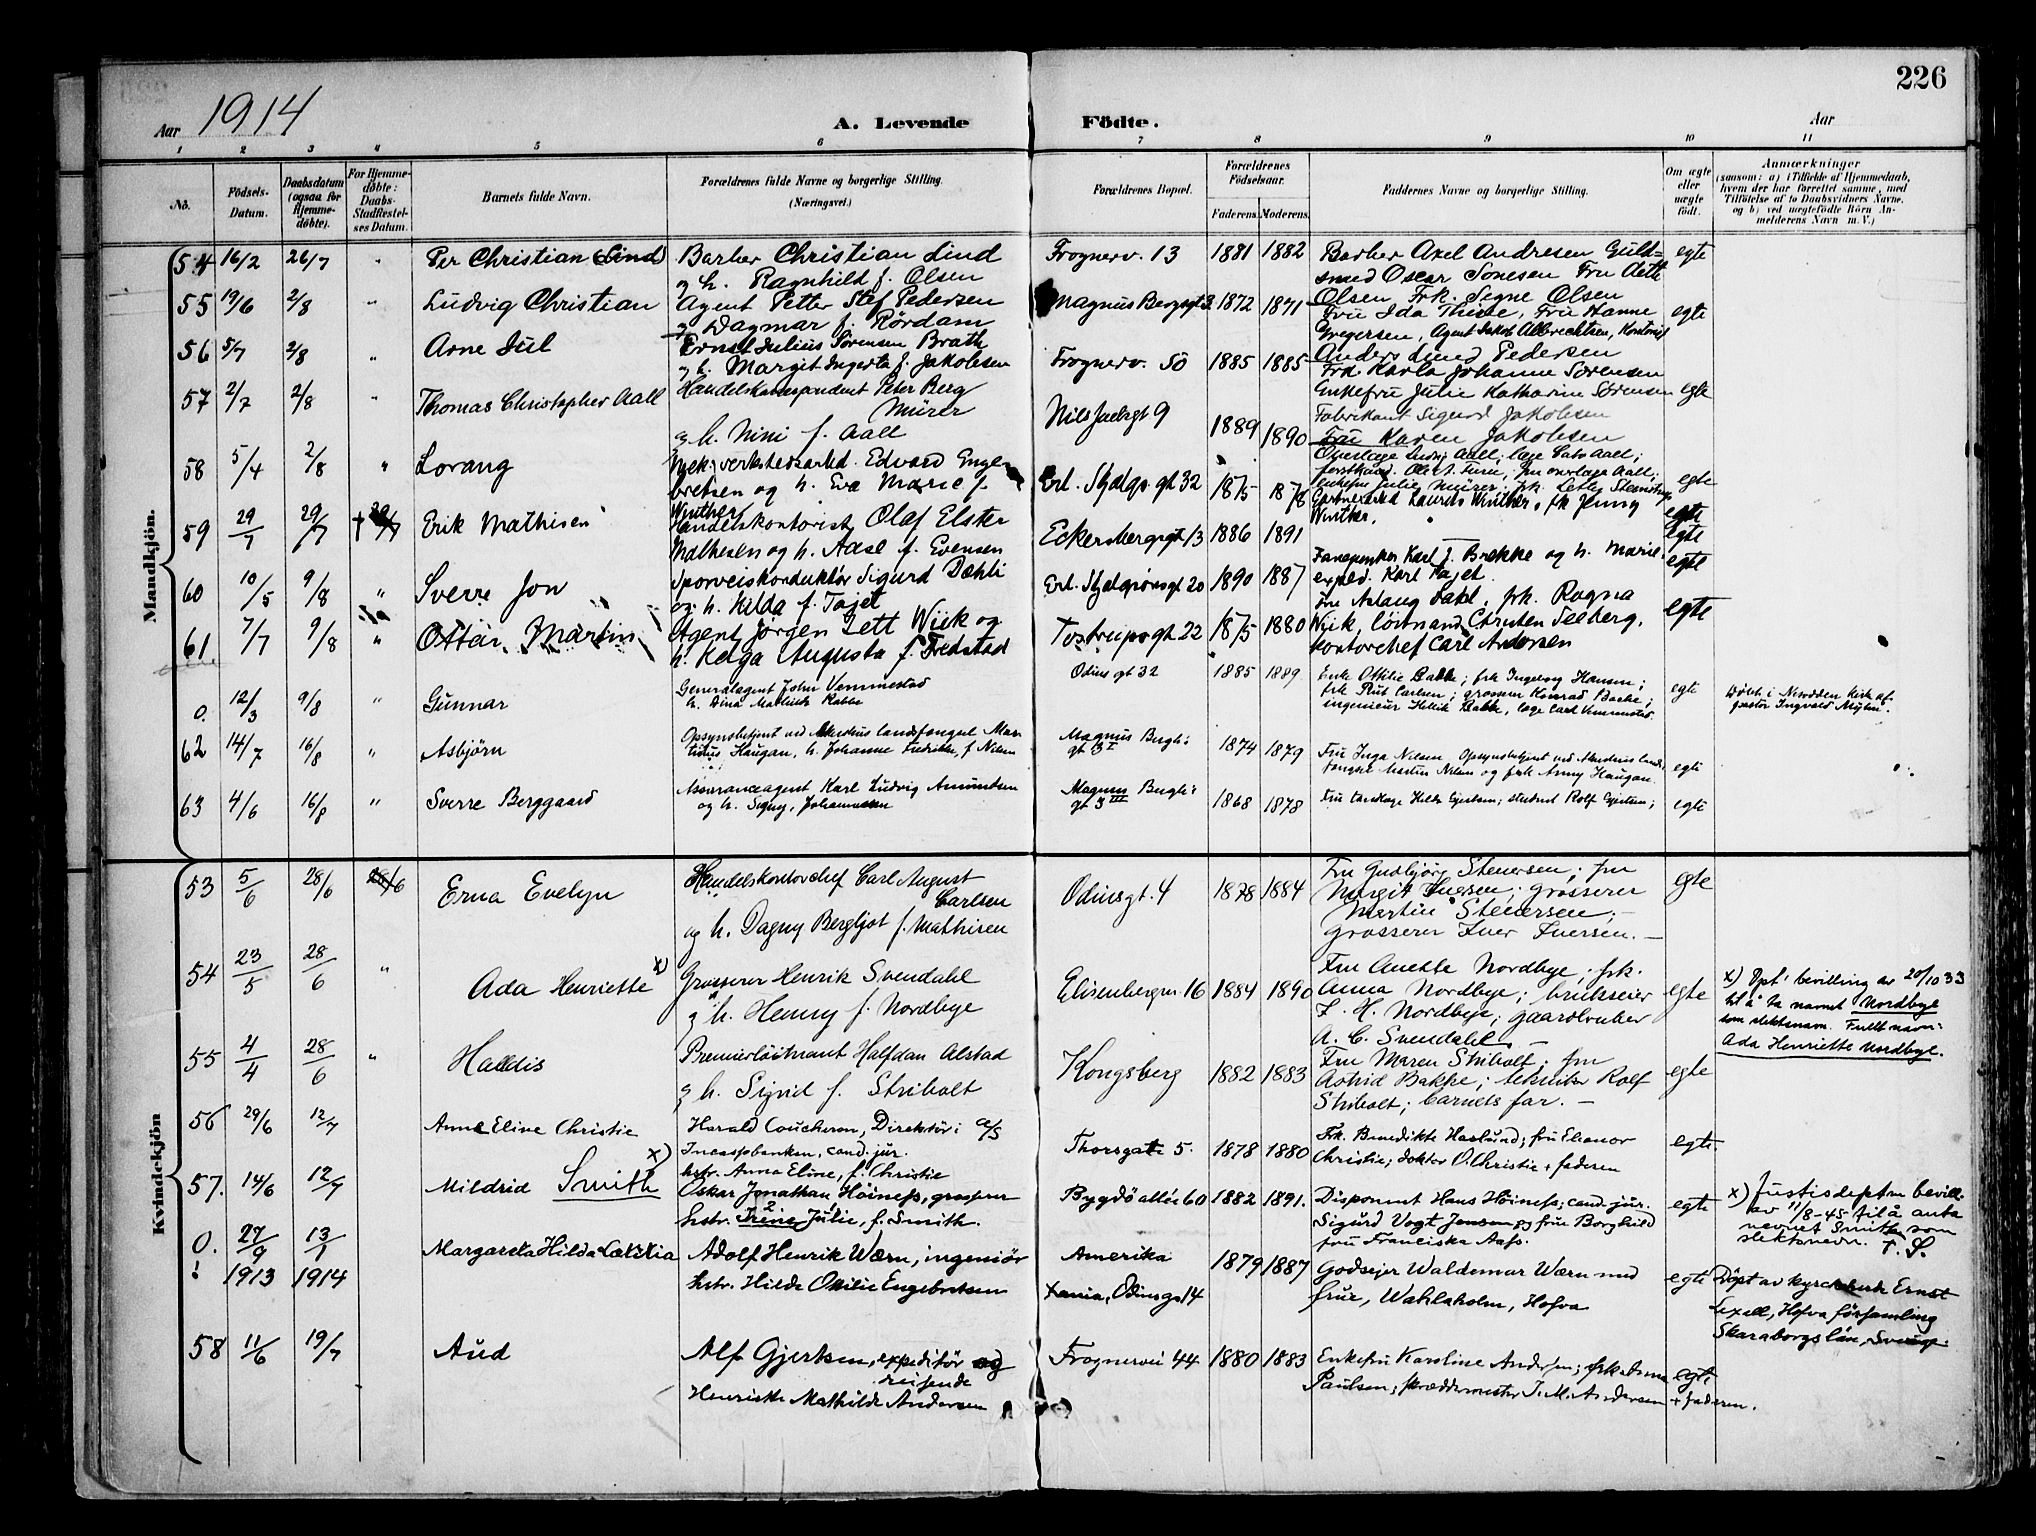 226
Aar 1914
A. Levende Födte.
Aar
1 2 3 4 5 6 7 8 9 10 11
No.
Födsels-Datum.
Daabsdatum (ogsaa for Hjemmedøbte).
For Hjemmedøbte: Daabs-Stadfæstelses Datum.
Barnets fulde Navn.
Forældrenes fulde Navne og borgerlige Stilling.
(Næringsvei.)
Forældrenes Bopæl.
Forældrenes Fødselsaar.
Faderens. Moderens.
Faddernes Navne og borgerlige Stilling.
Om ægte eller uægte født.
Anmærkninger
(saasom: a) i Tilfælde af Hjemmedaab, hvem der har forrettet samme, med Tilföielse af to Daabsvidners Navne, og b) ved uægtefödte Börn Anmelderens Navn m. V.)
Mandkjön.
54 16/2 26/7 " Per Christian (Lind) Barber Christian Lind
og h. Ragnhild f. Olsen
Frognerv. 13 1881 1882 Barber Axel Andresen Guld-
smed Oscar Fru
Olsen Frk. Signe Olsen
egte
55 19/6 2/8 " Ludvig Christian Agent Petter Stef Pedersen
og Dagmar f. Rördam
Magnus Bergsgt 3 1872 1871 Fru Ida Thisse, Fru Hanne
Gregersen, Agent Jakob Albrechtsen, Kontorist
Anders Lund Pedersen
egte
56 5/7 2/8 " Arne Jul Ernst Julius Sörensen Brath
og h. Margit Ingerta f. Jakobsen
Frognerv. 50 1885 1885 Frk. Karla Johanne Sörensen
Enkefru Julie Katharine Sörensen
Fabrikant Sigurd Jakobsen
Fru Karen Jakobsen
egte
57 2/7 2/8 " Thomas Christopher Aall Handelskorrespondent Peter Berg
Mürer
og h. Nini f. Aall
Nils Juelsgt 9 1889 1890
Overlæge Ludv. Aall; læge Cato Aall;
fru overlæge Aall;
egte
58 5/4 2/8 " Lorang Mek. verkstedsarbd. Edvard Enge-
bretsen og h. Eva Marie f.
Winther
Erl. Skjalgs. gt 32 1875 1878
Gartnerarbd Laurits Winther, frk Jenny
Winther.
egte
59 29/7 29/7 Erik Mathisen Handelskontorist Olaf Elster
Mathesen og h. Aase f. Evensen
Eckersbergsgt 13 1886 1891 — egte
60 10/5 9/8 " Sverre Jon Sporveiskonduktör Sigurd Dæhli
og h. Hilda f. Tajet
Erl. Skjalgsönsgt 20 1890 1887 Karl J. Brekke og h. Marie;
exped. Karl Tajet.
egte
61 7/7 9/8 " Ottar Martin Agent Jörgen Zett Wiik og
h. Helga Augusta f. Fredstad
Tostrupsgt 22 1875 1880 frk. Ragna
Wiik, löitnand Christen Seeberg,
kontorchef Carl Andersen
egte
0. 12/3 9/8 " Gunnar Generalagent John Vemmestad
h. Dina Mathilde
Odins gt 32 1885 1889 Enke Ottilie Bakke; frk Ingeborg Hansen;
frk Rut Carlsen; grosserer Konrad Bakke;
ingeniör Bakke, læge Carl Vemmestad.
egte
Döbt i Notodden Kirke af
pastor Ingvald
62 14/7 16/8 " Asbjörn Opsynsbetjent ved Akershus landsfængsel Mar-
tinius Haugan, h. Johanne Fredrikke, f. Nilsen
Magnus Bergs
gt 3 I 1874 1879 Fru Inga Nilsen Opsynsbetjent ved Akershus lands-
fængsel Martin Nilsen og frk Anny Haugan.
egte
63 4/6 16/8 " Sverre Berggaard Assuranceagent Karl Ludvig Amundsen
og h. Signy, Johannesen
Magnus Bergs
gt 3 III 1868 1878 Fru tandlæge Hilda Gjertsen; student Rolf Gjertsen;
egte
Kvindekjön
53 5/6 28/6 28/6 Erna Evelyn Handelskontorchef Carl August
Carlsen
og h. Dagny Bergljot f. Mathisen
Odinsgt. 4 1878 1884 Fru Gudbjörg Stenersen; fru
Margit Iversen; grosserer
Martin Stenersen;
grosserer Iver Iversen. —
egte
54 23/5 28/6 " Ada Henriette x) Grosserer Henrik Svendahl
og h. Henny f. Nordbye
Elisenbergv. 16 1884 1890 Fru Anette Nordbye; frk.
Anna Nordbye; brukseier
F. H. Nordbye; gaardbruker
A. C. Svendahl —
egte
x) Opt: bevilling av 20/10 33
til å ta navnet Nordbye
som slektsnavn. Fullt navn:
Ada Henriette Nordbye.
55 4/4 28/6 " Haldis Premierlöitnant Halfdan Alstad
og h. Sigrid f. Stribolt
Kongsberg 1882 1883 Fru Maren Stribolt; fru
Astrid Bakke; tekniker Rolf
Stribolt; barnets far. —
egte
56 29/6 12/7 Anna Eline Christie Harald Coucheron, Direktör i A/S
Incassobanken, cand. jur.
hstr. Anna Eline, f. Christie
Thorsgate 5. 1878 1880 Frk. Benedikte Haslund; fru Eleanor
Christie; doktor O. Christie + faderen
egte.
57. 14/6 12/7 Mildrid Smith x) Oskar Jonathan Höiness, grosserer
hstr. Irene Julie, f. Smith.
Bygdö allé 60 1882 1891. Disponent Hans Höiness; cand. jur.
Sigurd Vogt Jensen og frue Borghild
fru Franciska Aass.
egte
x) Justisdeptm bevill.
av 11/8-45 til å anta
navnet Smith som
slektsnavn. T. S.
0. 27/9 1913 13/1 1914 Margareta Hilda Lætitia Adolf Henrik Wærn, ingeniör
hstr. Hilde Ottilie Engebretsen
Amerika
Xania, Odinsgt 14
1879 1887 Godsejer Waldemar Wærn med
frue, Wahlaholm, Hofva
egte
Döpt av Ernst
Lexell, Hofva församling
Skaraborgs län,
58 11/6 19/7 Aud Alf Gjertsen, expeditör og
reisende
Henriette Mathilde Andersen
Frognervei 44 1880 1883 Enkefru Karoline Andersen; frk Anna
Paulsen; skræddermester J. M. Andersen
+ faderen.
egte